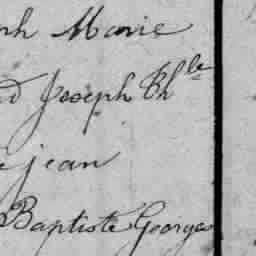 ph Marie
d Joseph Th^le
e jean
Baptiste Georges